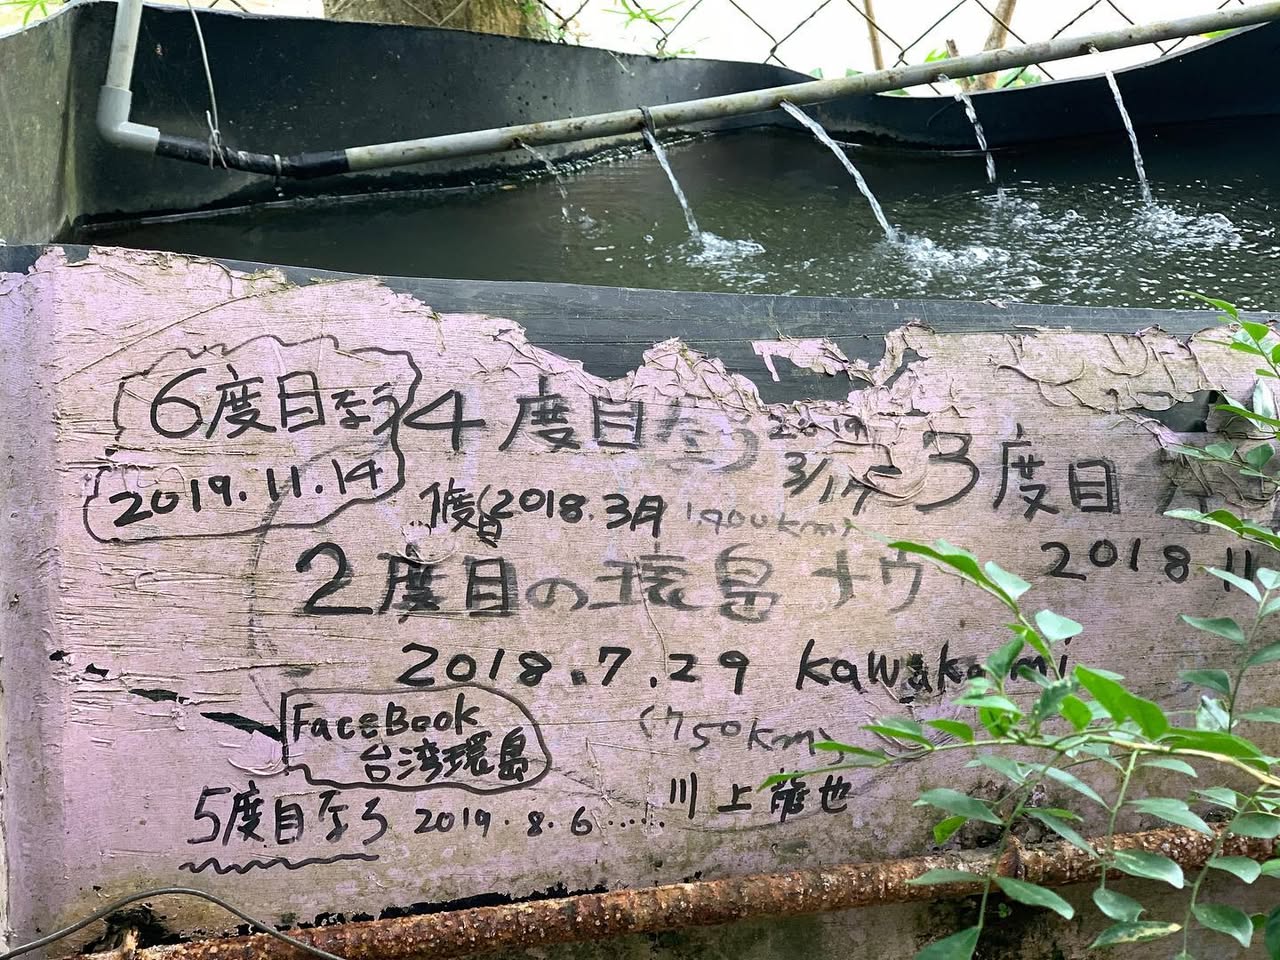 6度目なう
2019.11.14
4度目なう
2019
3/17
3度目
2018.11
1度目(2018.3月
1,900km)
2度目の環島ナウ
2018.7.29 Kawakami
(750km)
FaceBook
台湾環島
5度目なう 2019.8.6 ......
川上龍也